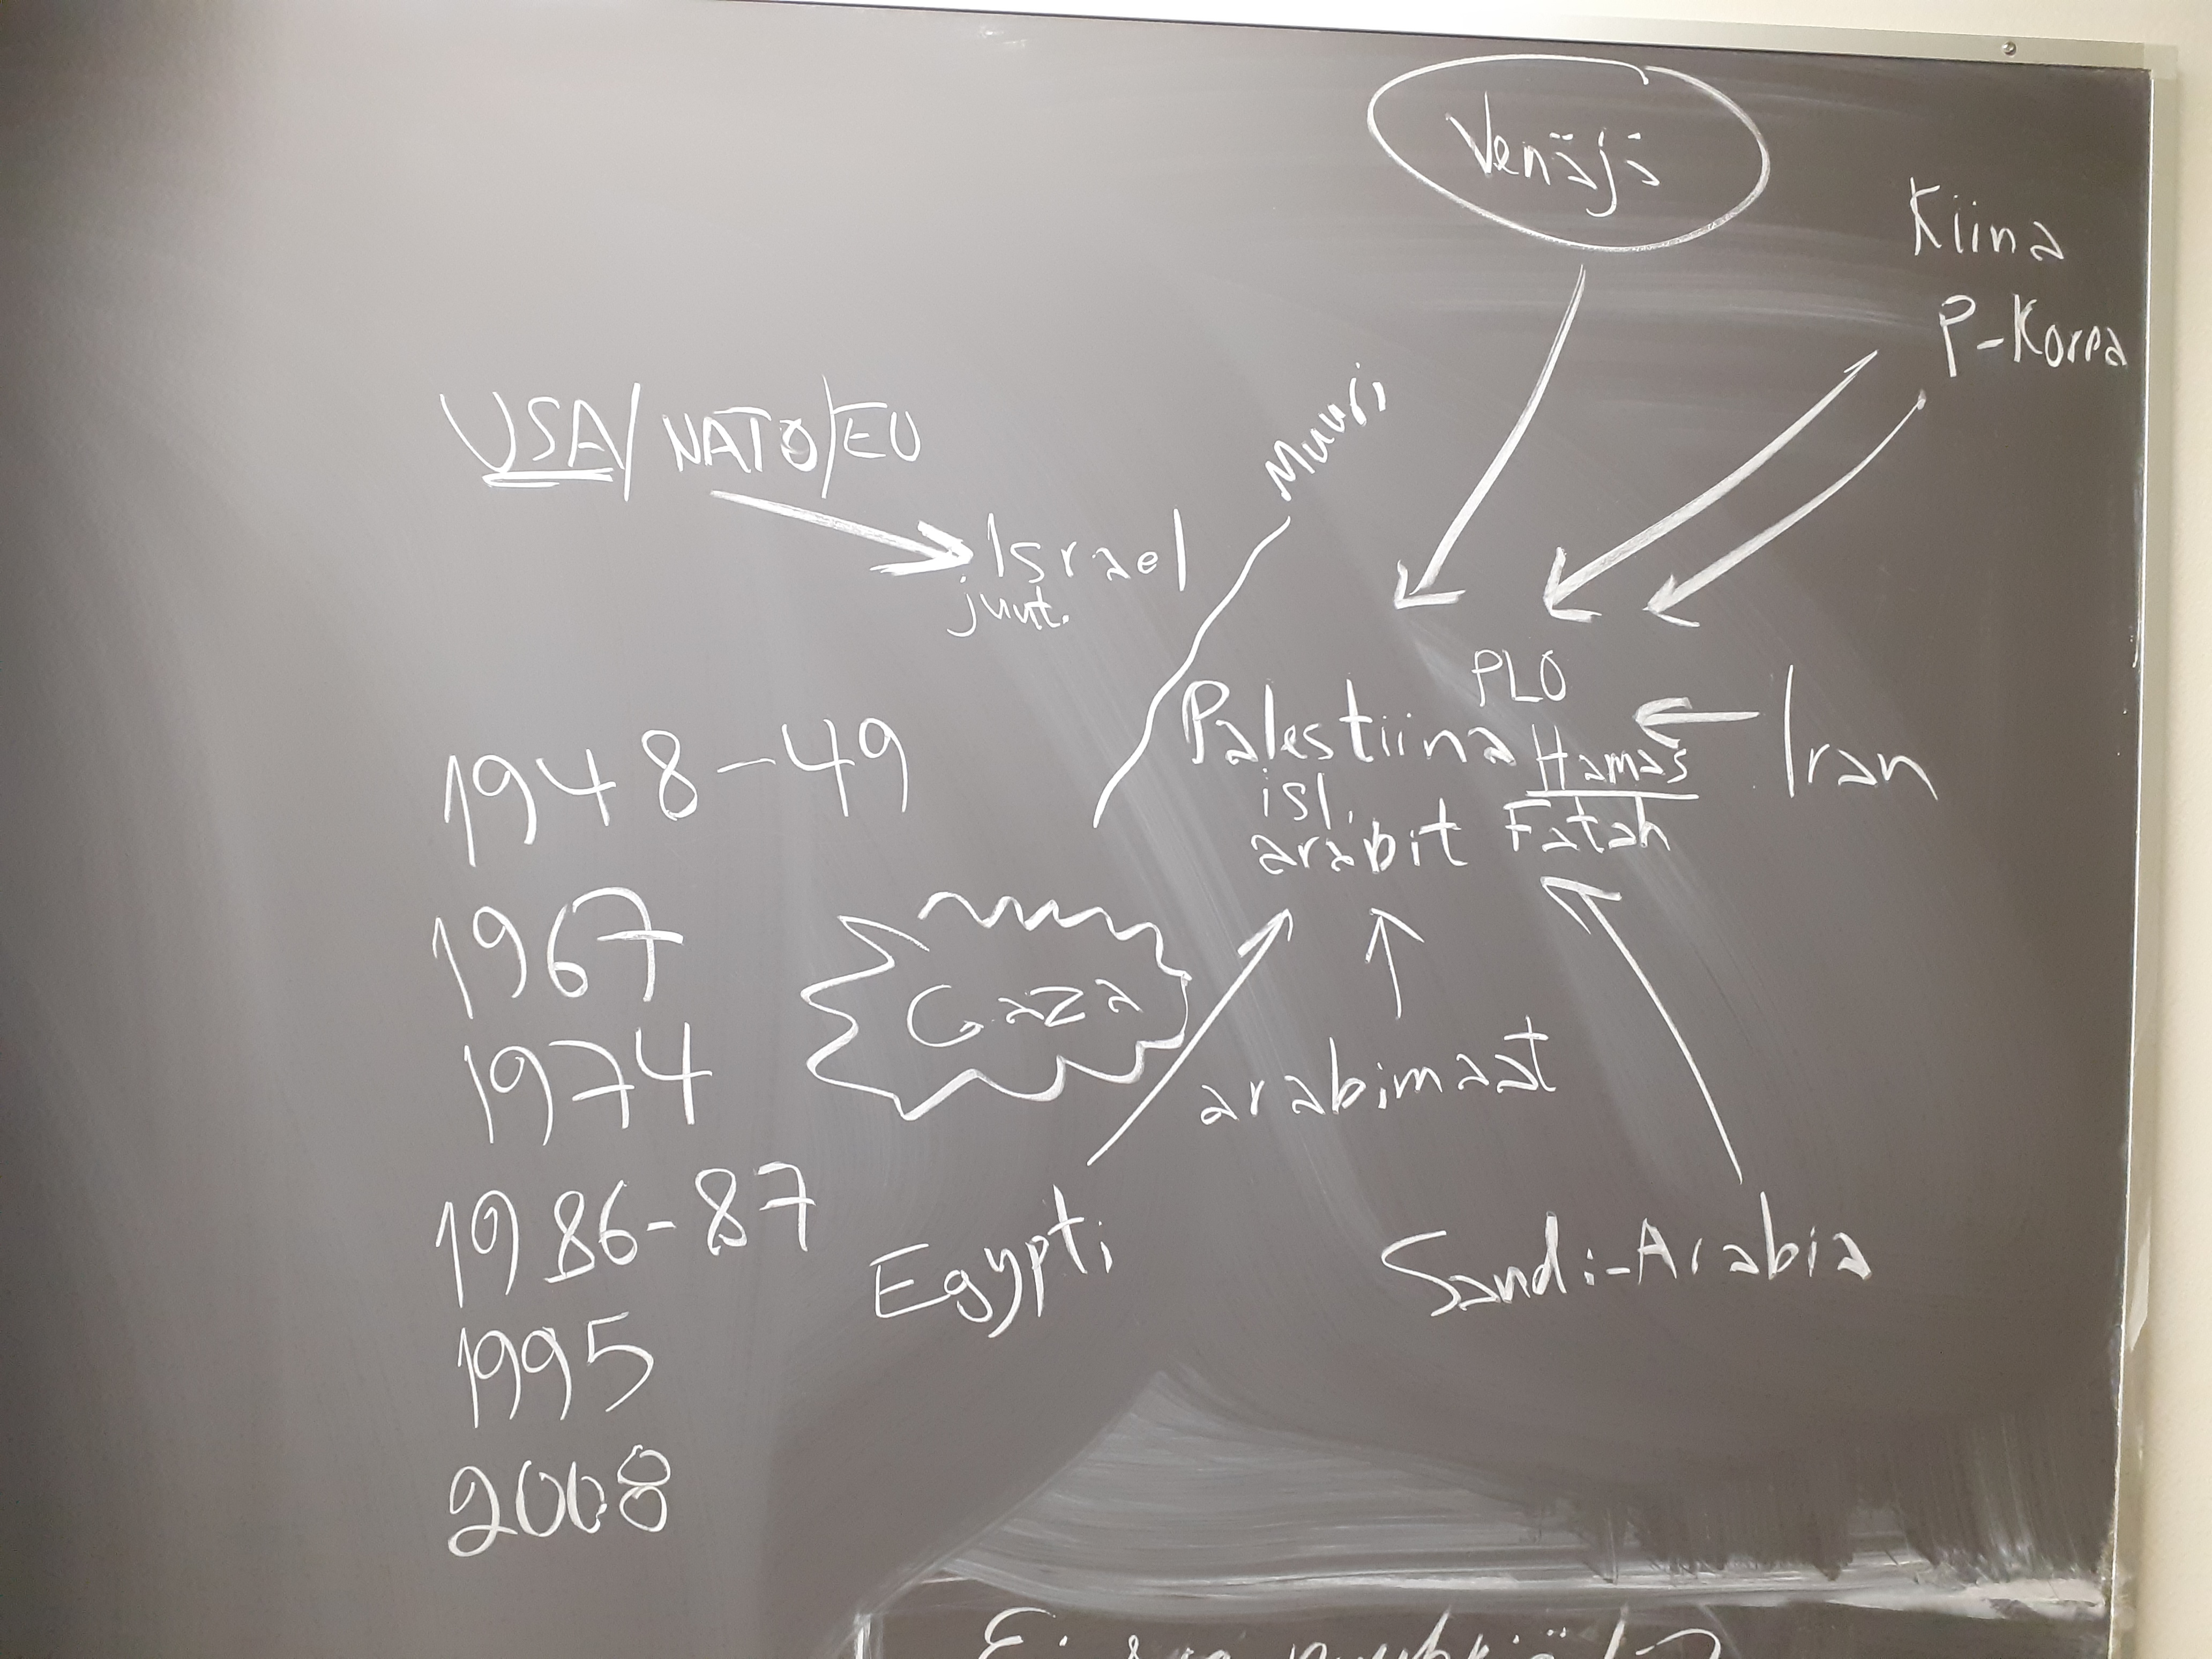 Venäjä
Kiina
P-Korea
USA/NATO/EU
Muuri
Israel
juut.
PLO
Palestiina Hamas
Iran
isl.
arabit Fatah
1948-49
1967
Gaza
1974
arabimaat
1986-87
Egypti
Saudi-Arabia
1995
2008
Ei saa pyyhkiä!